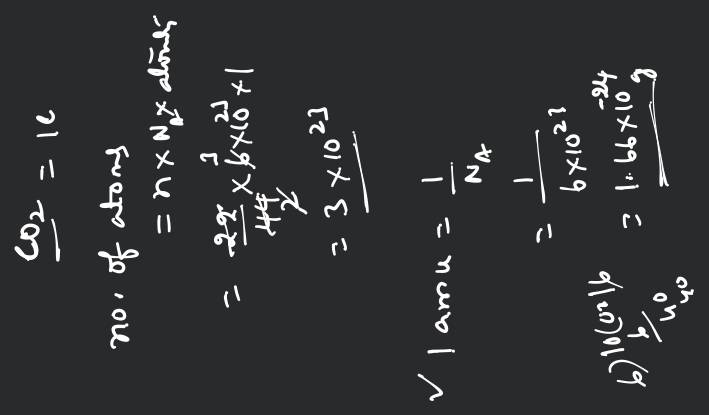 CO2 = 1C
no. of atoms
= n × NA × atomicity
= 22/44 × 6×10^23 × 1
3
2
= 3 × 10^23
✓ 1 amu = 1/NA
= 1/6×10^23
= 1.66×10^-24 g
6)10(
6
40